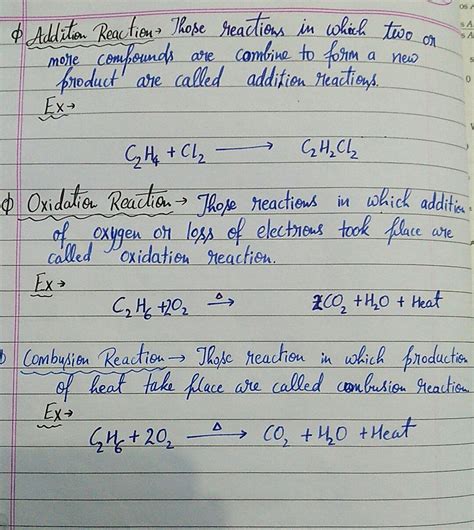 Addition Reaction → Those reactions in which two or
more compounds are combine to form a new
product are called addition reactions.
Ex →
C₂H₄ + Cl₂ ⟶ C₂H₂Cl₂
Oxidation Reaction → Those reactions in which addition
of oxygen or loss of electrons took place are
called oxidation reaction.
Ex →
C₂H₆ + 2O₂ Δ→ 2CO₂ + H₂O + Heat
Combusion Reaction → Those reaction in which production
of heat take place are called combusion reaction
Ex →
C₂H₆ + 2O₂ Δ→ CO₂ + H₂O + Heat